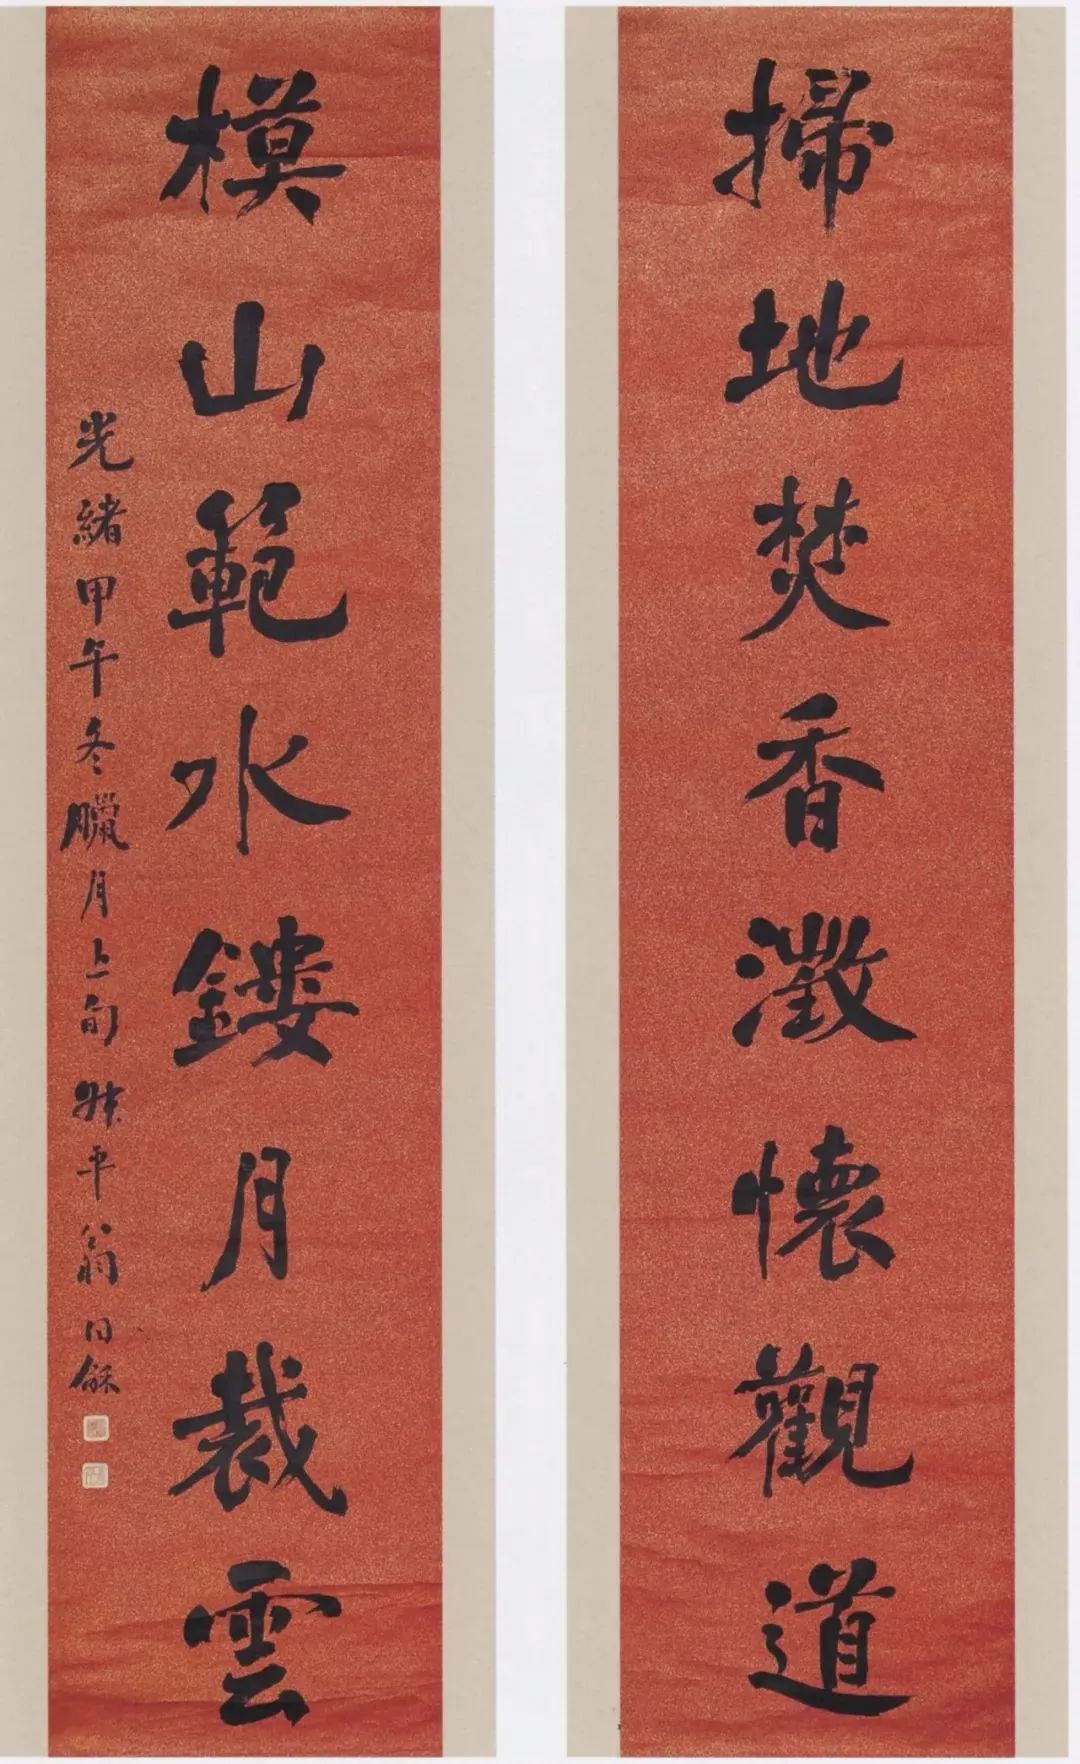 掃地焚香澂懷觀道
模山範水鏤月裁雲
光緒甲午冬臘月上旬叔平翁同龢